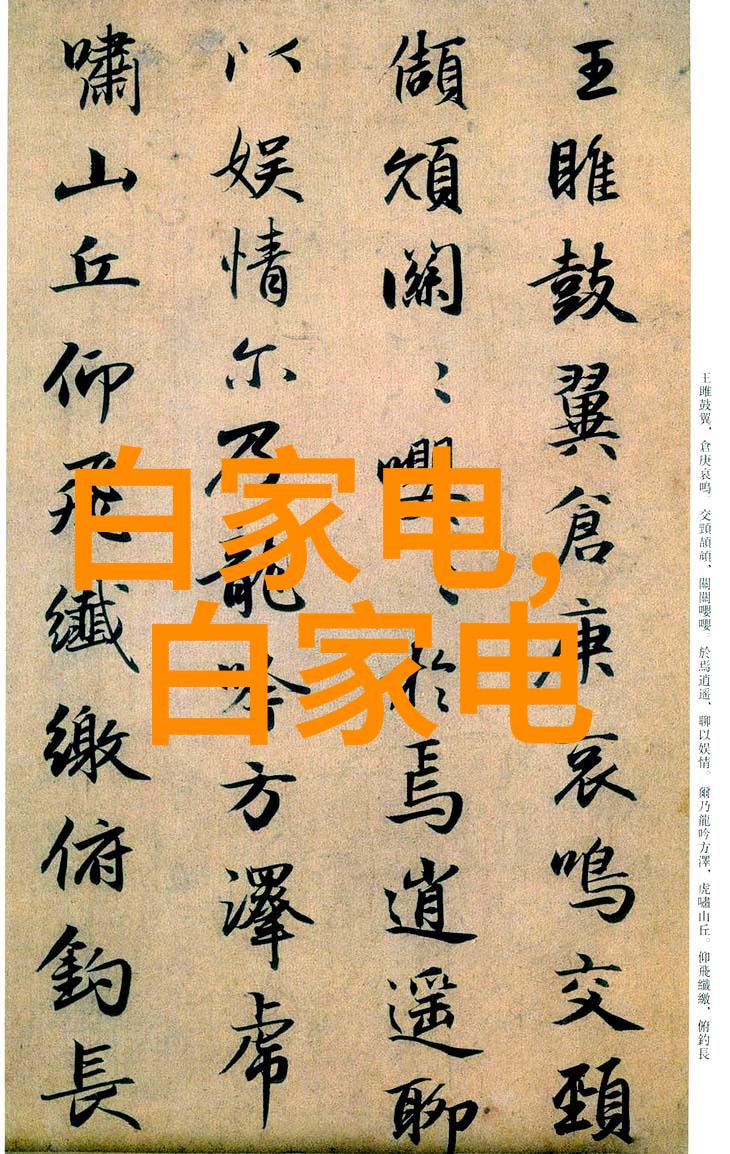 王雎鼓翼倉庚哀鳴交頸
頡頏關〻嚶〻於焉逍遥聊
以娱情尓乃龍吟方澤虎
嘯山丘仰飛纖繳俯釣長
王雎鼓翼，倉庚哀鳴。交頸頡頏，關關嚶嚶。於焉逍遥，聊以娱情。爾乃龍吟方澤，虎嘯山丘。仰飛纖繳，俯釣長
白家电,
白家电